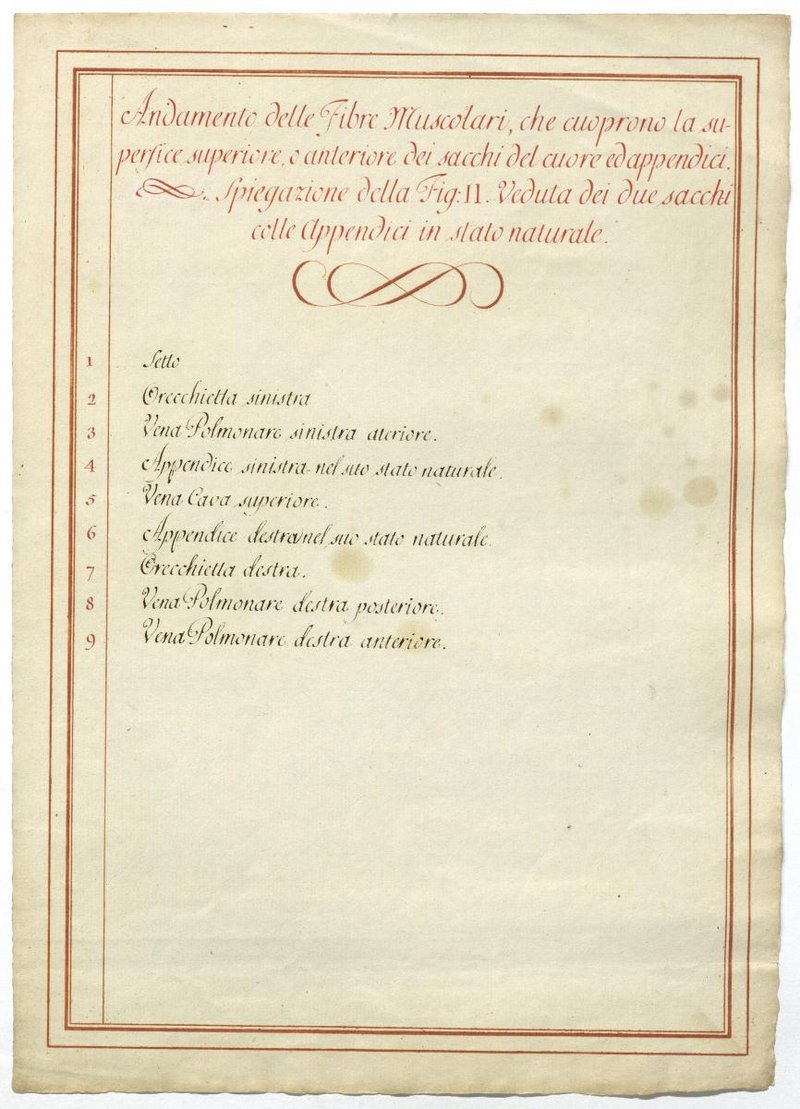 Andamento delle Fibre Muscolari, che cuoprono la su-
perfice superiore, o anteriore dei sacchi del cuore ed appendici.
Spiegazione della Fig: II. Veduta dei due sacchi
colle Appendici in stato naturale.
1 Setto
2 Orecchietta sinistra
3 Vena Polmonare sinistra ateriore.
4 Appendice sinistra nel suo stato naturale.
5 Vena Cava superiore.
6 Appendice destra nel suo stato naturale.
7 Orecchietta destra.
8 Vena Polmonare destra posteriore.
9 Vena Polmonare destra anteriore.